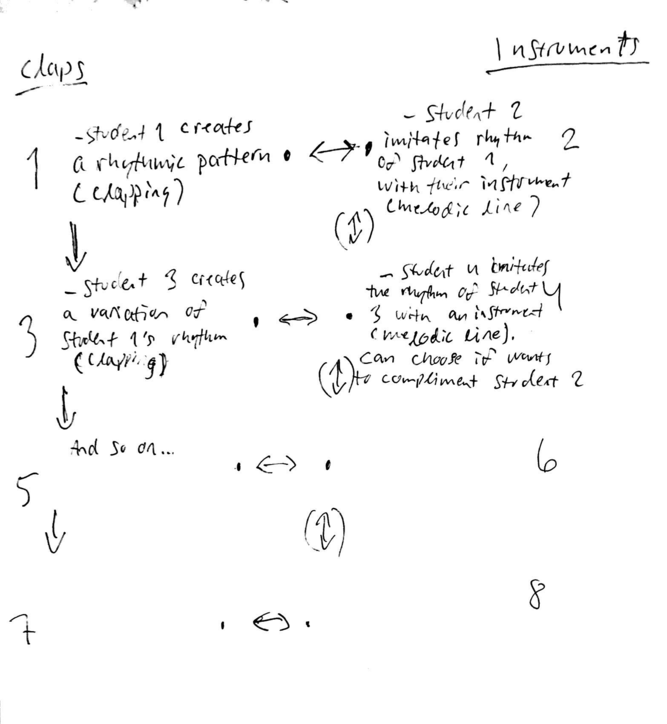 Claps
Instruments
1
- Student 1 creates
a rhythmic pattern
(clapping)
- Student 2
imitates rhythm
of Student 1,
with their instrument
(melodic line)
2
3
- Student 3 creates
a variation of
Student 1's rhythm
(clapping)
- Student 4 imitates
the rhythm of Student
3 with an instrument
(melodic line).
can choose if wants
to compliment Student 2
4
And so on...
5
6
7
8